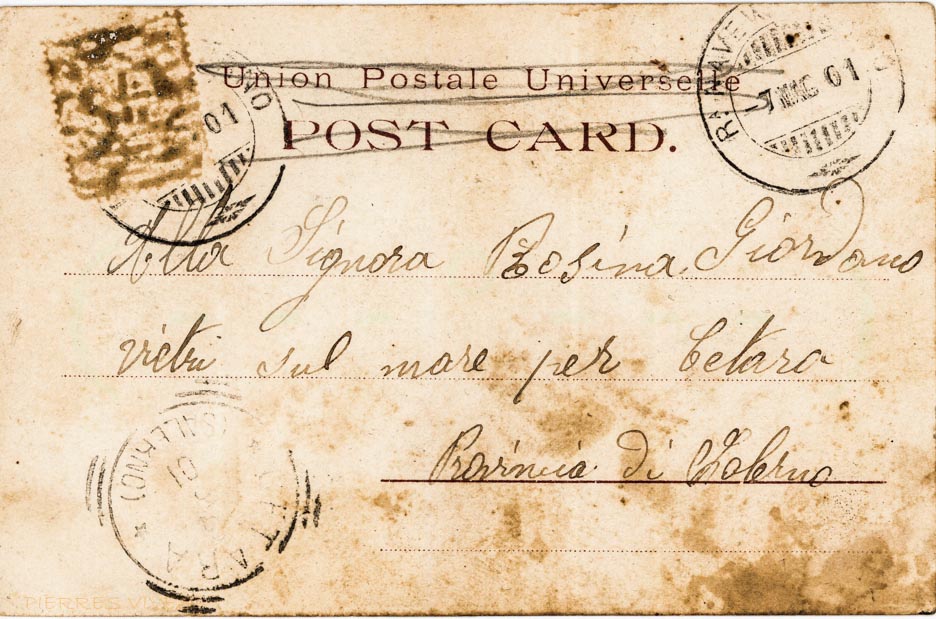 Union Postale Universelle
POST CARD.
7 MAG 01
01
Alla Signora Rosina Giordano
Vietri sul mare per Cetara
Provincia di Salerno
(SALERNO)
01